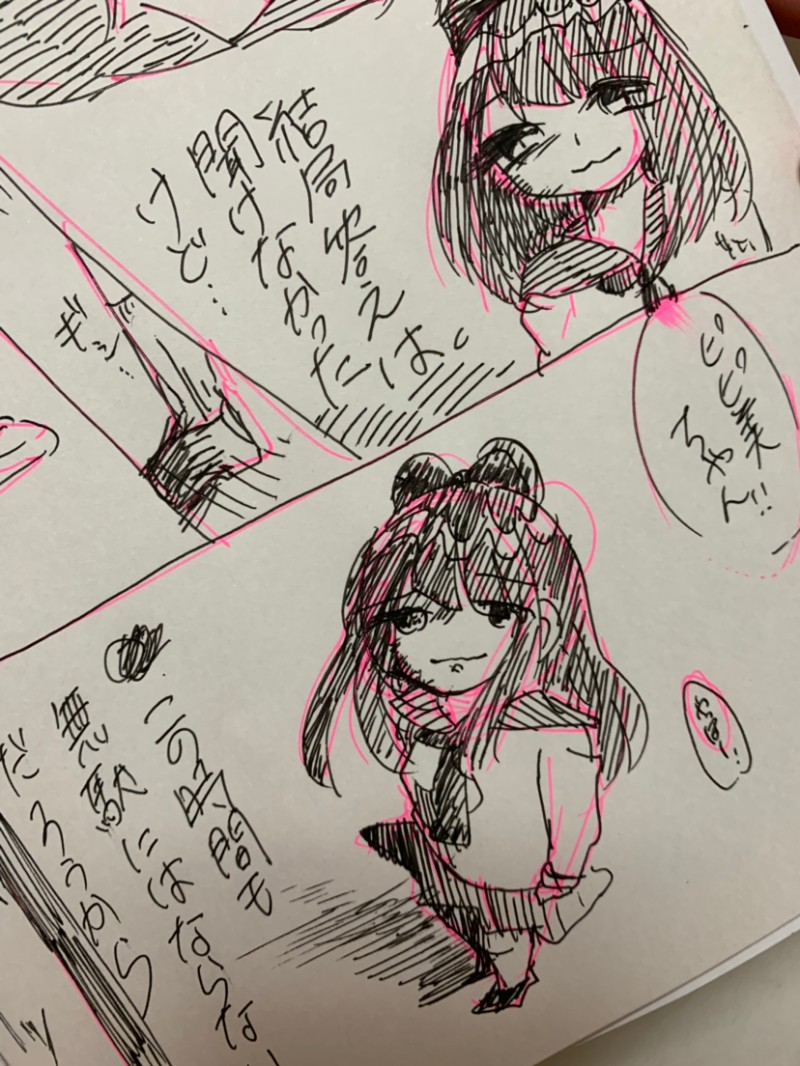 結局答えは
聞けなかった
けど…
ギシ…
ピピ美
ちゃん!!
この時間も
無駄にはならない
だろうから